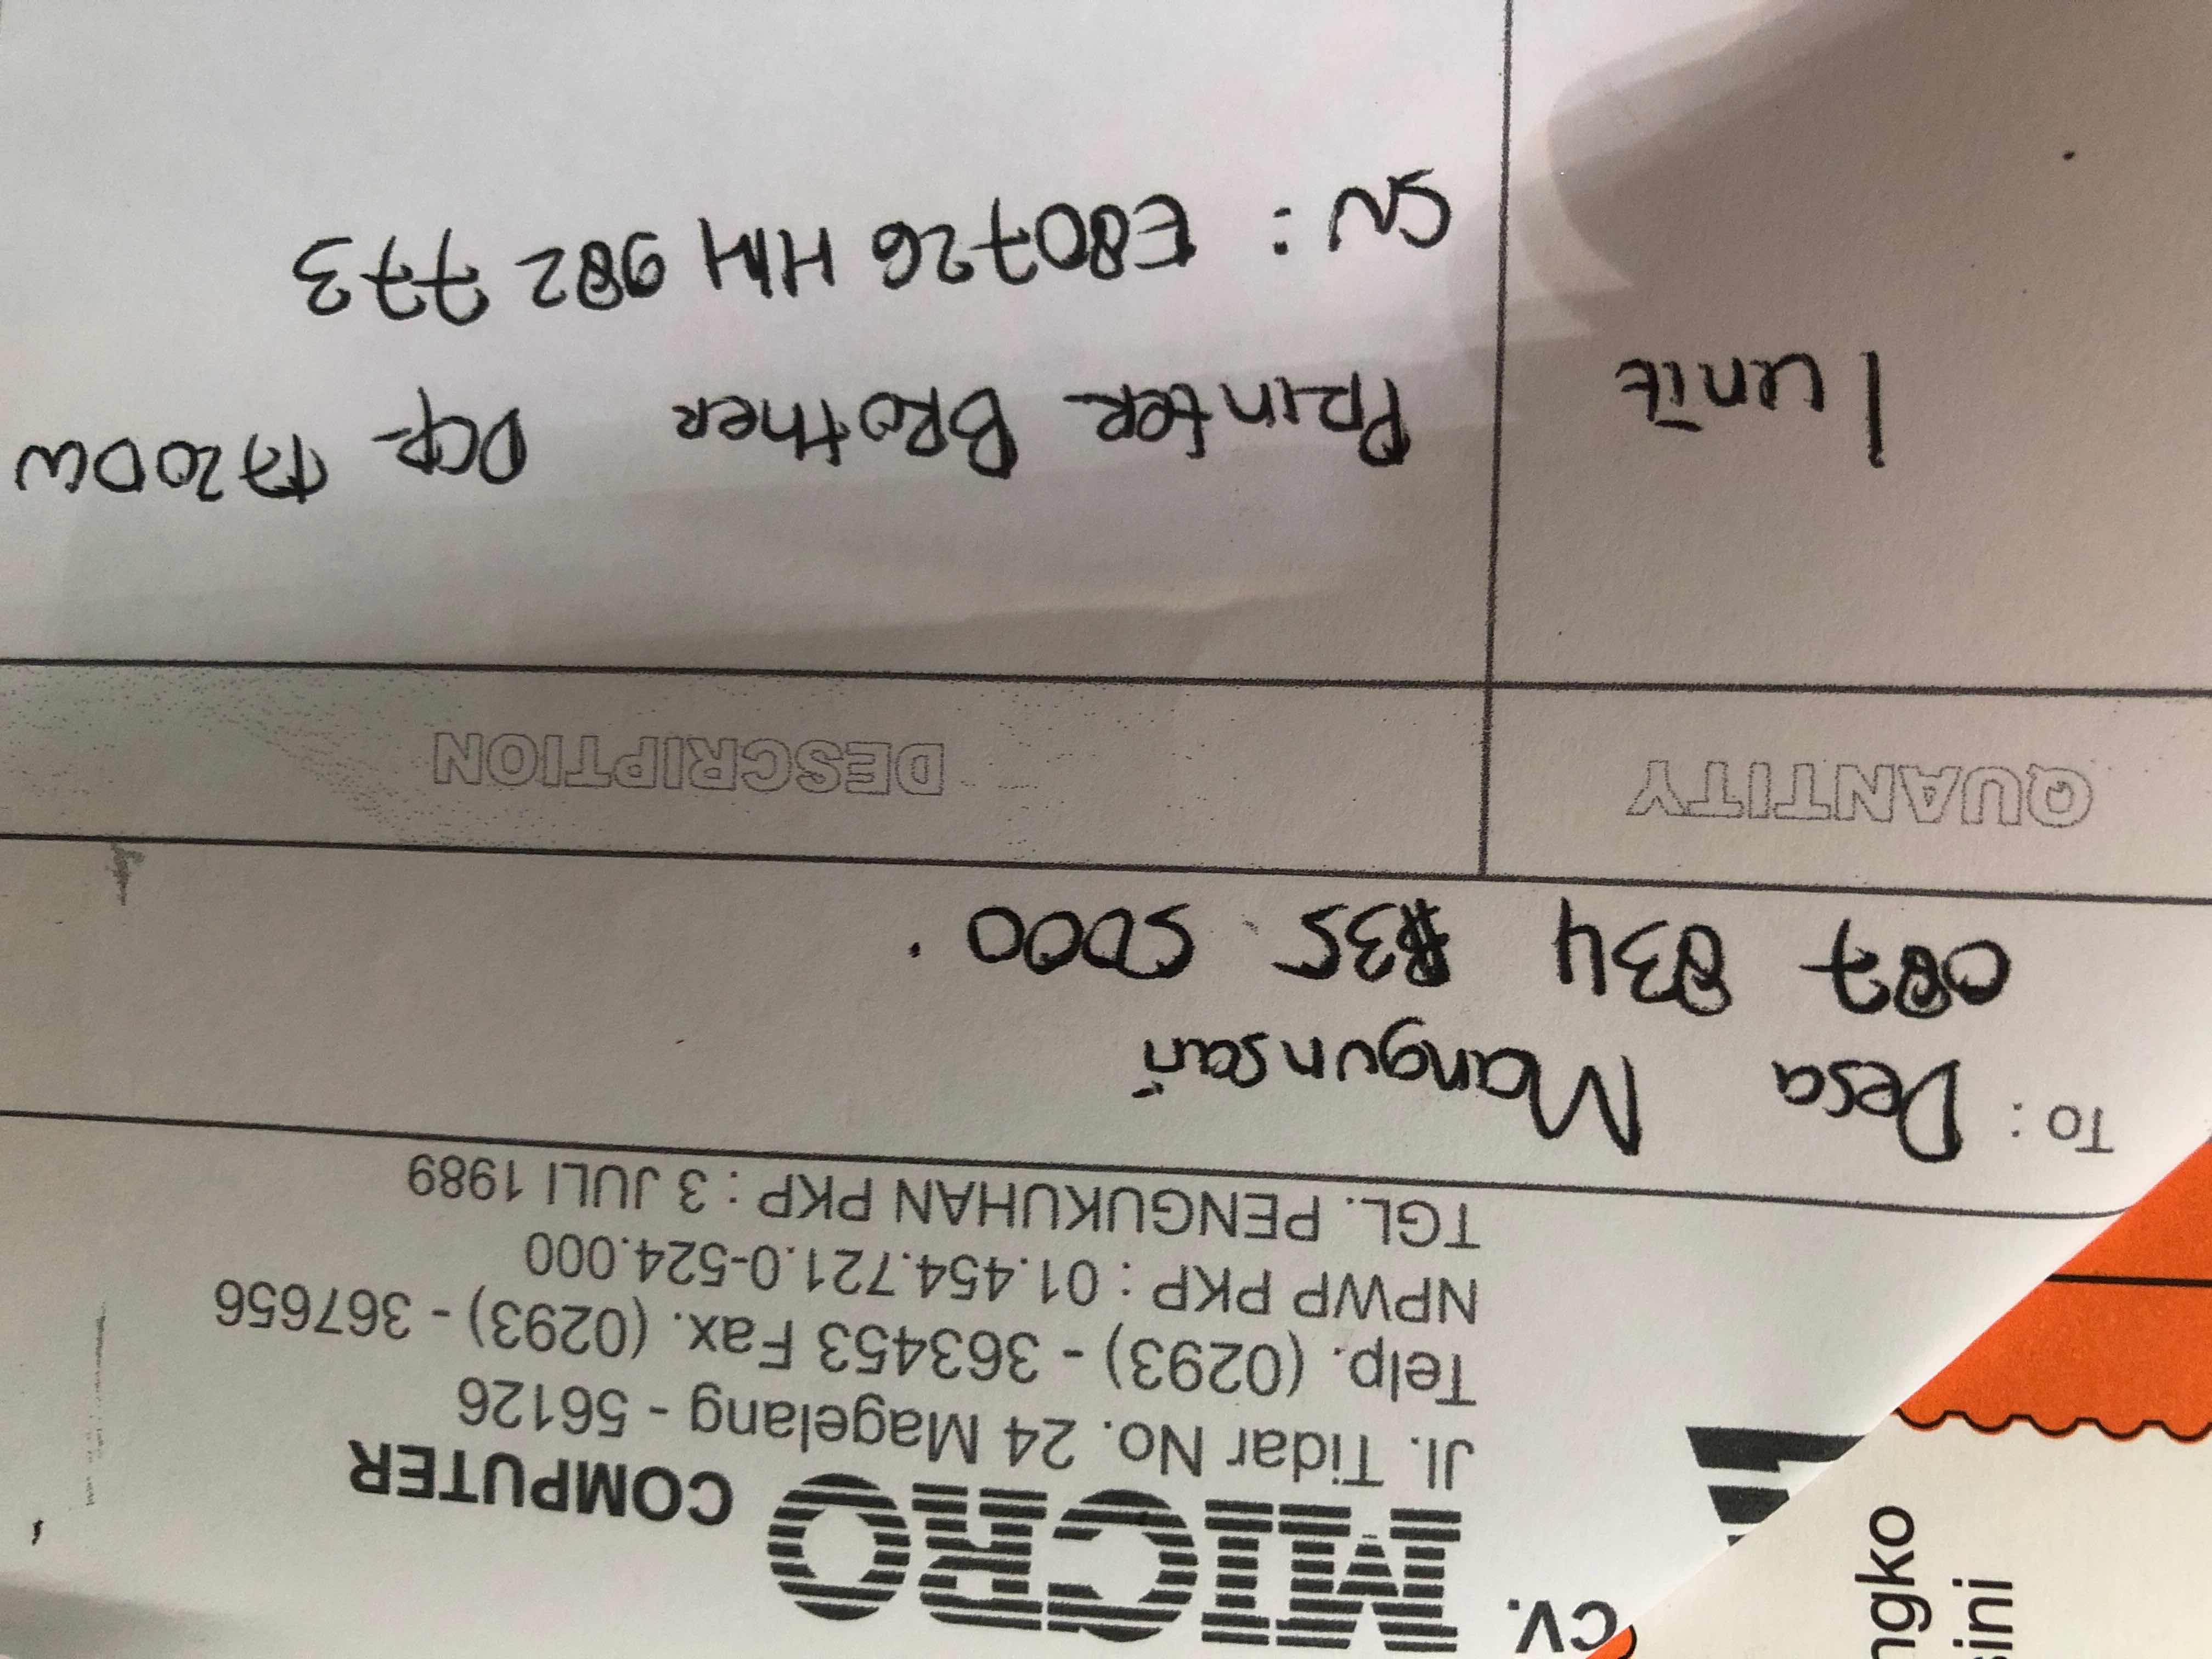 CV. MICRO COMPUTER
Jl. Tidar No. 24 Magelang - 56126
Telp. (0293) - 363453 Fax. (0293) - 367656
NPWP PKP : 01.454.721.0-524.000
TGL. PENGUKUHAN PKP : 3 JULI 1989
To : Desa Mangunsari
087 834 835 5000.
QUANTITY DESCRIPTION
1 unit Printer Brother DCP T720DW
SN : E80726 H1H 982 773
ngko
sini